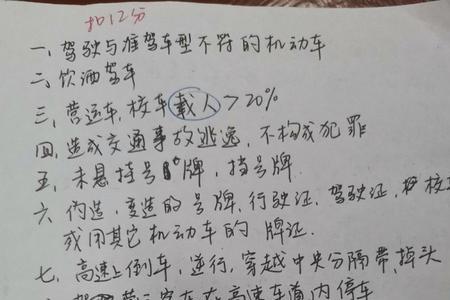 扣12分
一、驾驶与准驾车型不符的机动车
二、饮酒驾车
三、营运车,校车载人>20%
四、造成交通事故逃逸,不构成犯罪
五、未悬挂号牌,挡号牌
六、伪造,变造的号牌,行驶证,驾驶证,校
或用其它机动车的牌证.
七、高速上倒车,逆行,穿越中央分隔带,掉头
在高速车道内停车